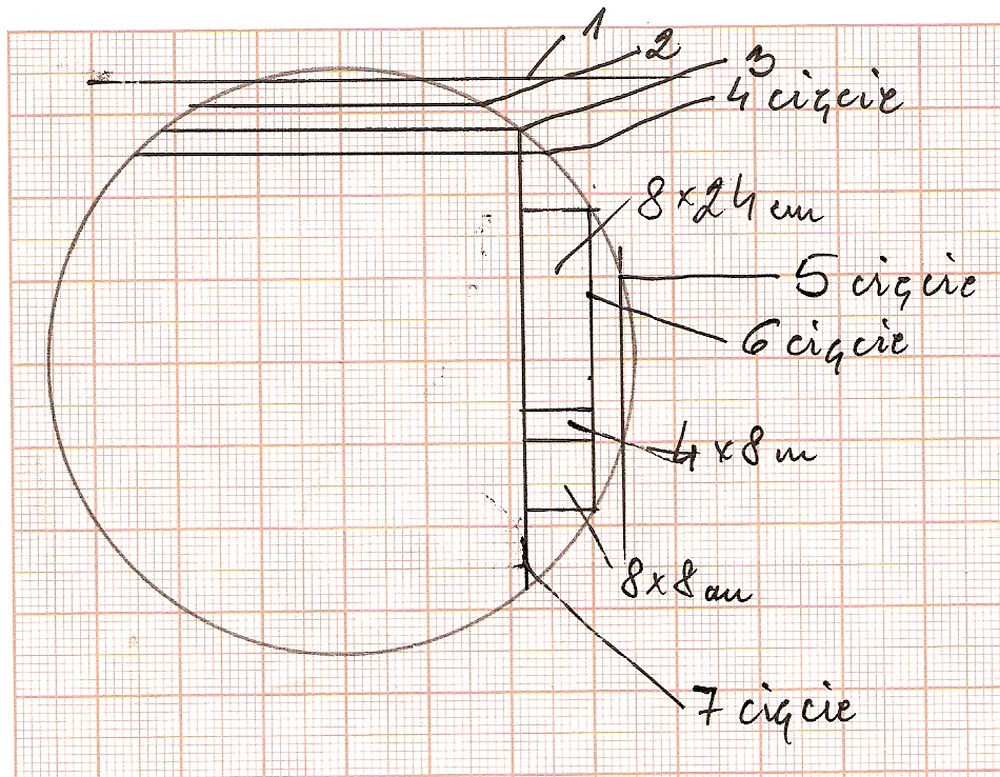 1
2
3
4 cięcie
8×24 cm
5 cięcie
6 cięcie
4×8 m
8×8 cm
7 cięcie